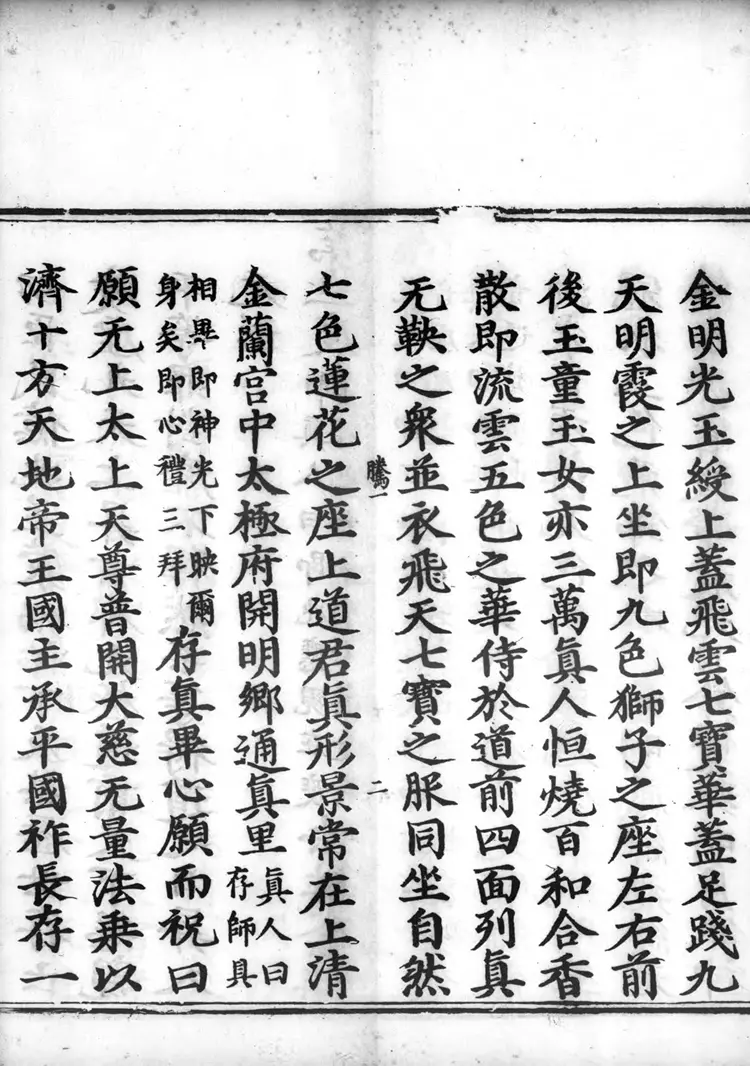 金明光玉綬上蓋飛雲七寶華蓋足踐九
天明霞之上坐即九色獅子之座左右前
後玉童玉女亦三萬真人恒燒百和合香
散即流雲五色之華侍於道前四面列真
无鞅之衆並衣飛天七寶之服同坐自然
騰一
二
七色蓮花之座上道君真形景常在上清
金蘭宮中太極府開明鄉通真里
真人曰
存師具
相畢即神光下映爾
身矣即心禮三拜
存真畢心願而祝曰
願无上太上天尊普開大慈无量法乘以
濟十方天地帝王國主承平國祚長存一